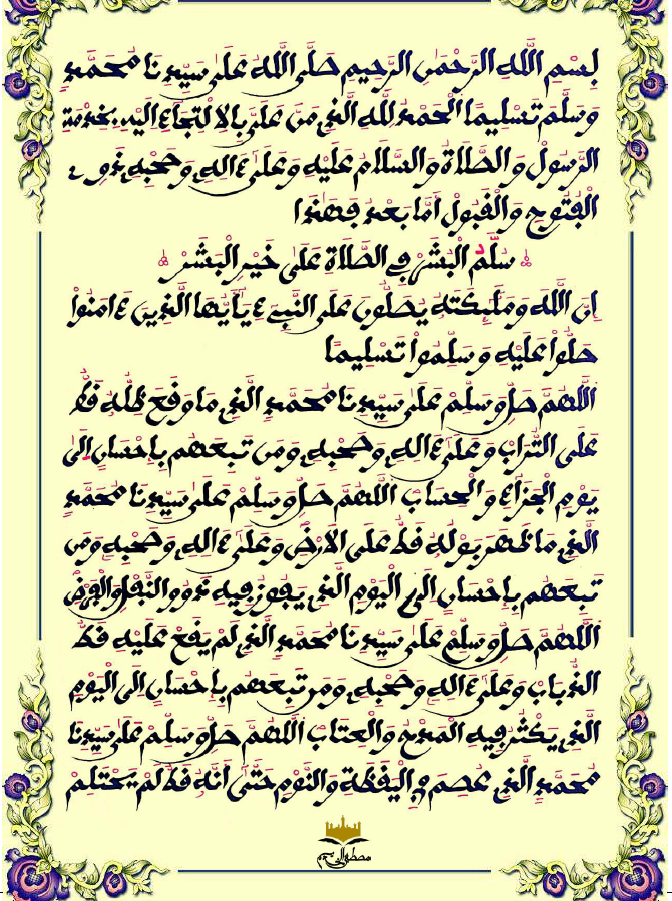 بِسْمِ اللَّهِ الرَّحْمَٰنِ الرَّحِيمِ صَلَّى اللَّهُ عَلَىٰ سَيِّدِنَا مُحَمَّدٍ
وَسَلَّمَ تَسْلِيمًا الْحَمْدُ لِلَّهِ الَّذِي مَنَّ عَلَيَّ بِالِالْتِجَاءِ إِلَيْهِ بِخِدْمَةِ
الرَّسُولْ وَالصَّلَاةُ وَالسَّلَامُ عَلَيْهِ وَعَلَىٰ ءَالِهِ وَصَحْبِهِ ذَوِي
الْفُتُوحِ وَالْقَبُولْ أَمَّا بَعْدُ فَهَٰذَا
سُلَّمُ الْبَشَرْ فِي الصَّلَاةِ عَلَىٰ خَيْرِ الْبَشَرْ
إِنَّ اللَّهَ وَمَلَٰئِكَتَهُ يُصَلُّونَ عَلَى النَّبِيءِ يَٰأَيُّهَا الَّذِينَ ءَامَنُواْ
صَلُّواْ عَلَيْهِ وَسَلِّمُواْ تَسْلِيمًا
اللَّهُمَّ صَلِّ وَسَلِّمْ عَلَىٰ سَيِّدِنَا مُحَمَّدٍ الَّذِي مَا وَقَعَ ظِلُّهُ قَطُّ
عَلَى التُّرَابْ وَعَلَىٰ ءَالِهِ وَصَحْبِهِ وَمَن تَبِعَهُم بِإِحْسَانٍ إِلَىٰ
يَوْمِ الْجَزَاءِ وَالْحِسَابْ اللَّهُمَّ صَلِّ وَسَلِّمْ عَلَىٰ سَيِّدِنَا مُحَمَّدٍ
الَّذِي مَا ظَهَرَ بَوْلُهُ قَطُّ عَلَى الْأَرْضِ وَعَلَىٰ ءَالِهِ وَصَحْبِهِ وَمَن
تَبِعَهُم بِإِحْسَانٍ إِلَى الْيَوْمِ الَّذِي يَفُوزُ فِيهِ ذَوُو النَّفْلِ وَالْفَرْضِ
اللَّهُمَّ صَلِّ وَسَلِّمْ عَلَىٰ سَيِّدِنَا مُحَمَّدٍ الَّذِي لَمْ يَقَعْ عَلَيْهِ قَطُّ
الذُّبَابْ وَعَلَىٰ ءَالِهِ وَصَحْبِهِ وَمَن تَبِعَهُم بِإِحْسَانٍ إِلَى الْيَوْمِ
الَّذِي يَكْثُرُ فِيهِ الْمَدْحُ وَالْعِتَابْ اللَّهُمَّ صَلِّ وَسَلِّمْ عَلَىٰ سَيِّدِنَا
مُحَمَّدٍ الَّذِي عُصِمَ فِي الْيَقَظَةِ وَالنَّوْمِ حَتَّىٰ أَنَّهُ قَطُّ لَمْ يَحْتَلِمْ